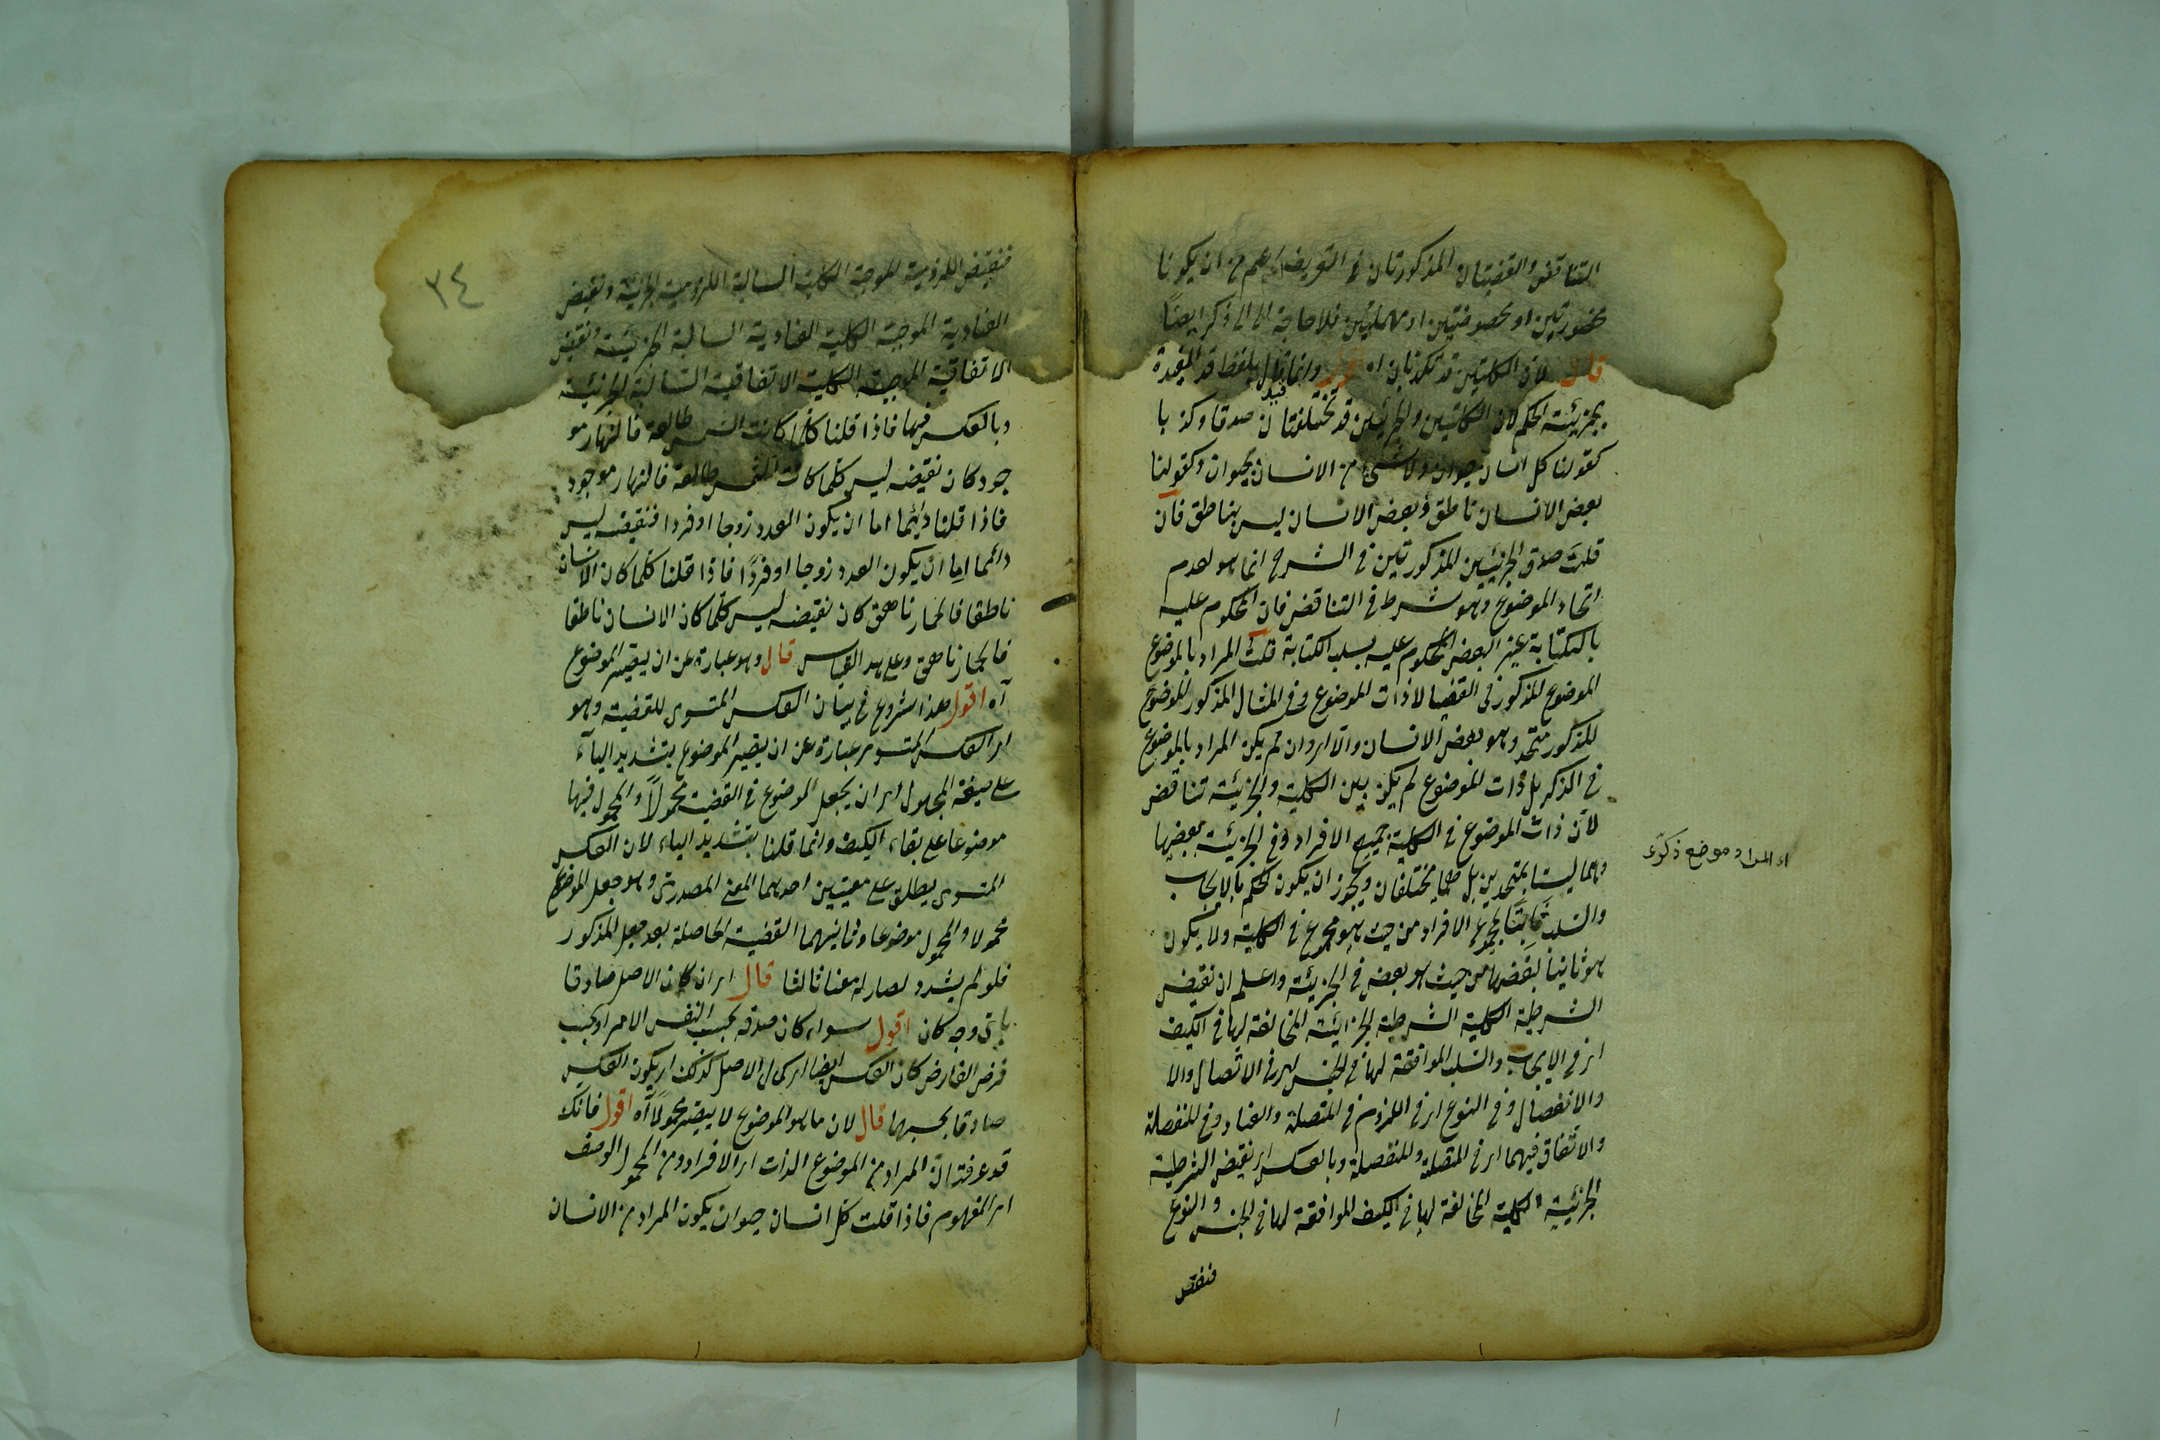 التناقض القضيتان المذكورتان في التعريف اعم من ان يكونا
محصورتين او مخصوصتين او مهملتين فلا حاجة الى ذكر ايضا
قال لان الكليتين قد تكذبان اه اقول وانما قال بلفظ قد المفيدة
بجزئية الحكم لان الكليتين والجزئيتين قد تختلفان صدقا وكذبا
كقولنا كل انسان حيوان ولا شئ من الانسان بحيوان وكقولنا
بعض الانسان ناطق وبعض الانسان ليس بناطق فان
قلت صدق الجزئيتين المذكورتين في الشرح انما هو لعدم
اتحاد الموضوع وهو شرط في التناقض فان المحكوم عليه
بالكتابة غير البعض المحكوم عليه بسلب الكتابة قلت المراد بالموضوع
الموضوع المذكور في القضيا لا ذات الموضوع وفي المثال المذكور الموضوع
المذكور متحد وهو بعض الانسان والا اى وان لم يكن المراد بالموضوع
في الذكر بل ذات الموضوع لم يكن بين الكلية والجزئية تناقض
لان ذات الموضوع في الكلية جميع الافراد وفي الجزئية بعضها
وهما ليستا بمتحدين بل هما مختلفان ويجوز ان يكون الحكم بالايجاب
والسلب ثابتا لمجموع الافراد من حيث هو مجموع في الكلية ولا يكون
هو ثانيا لبعضها من حيث هو بعض في الجزئية واعلم ان نقيض
الشرطية الكلية الشرطية الجزئية المخالفة لها في الكيف
اى في الايجاب والسلب الموافقة لها في الجنس اى في الاتصال والا
والانفصال وفي النوع اى في اللزوم في المتصلة والعناد وفي المنفصلة
والاتفاق فيهما اى في المتصلة والمنفصلة وبالعكس اى نقيض الشرطية
الجزئية الكلية المخالفة لها في الكيف الموافقة لها في الجنس والنوع
فنقيض
اى المراد موضع ذكرى
٣٤
فنقيض اللزومية الموجبة الكلية السالبة اللزومية الجزئية ونقيض
العنادية الموجبة الكلية العنادية السالبة الجزئية ونقيض
الاتفاقية الموجبة الكلية الاتفاقية السالبة الجزئية
وبالعكس فيها فاذا قلنا كلما كانت الشمس طالعة فالنهار مو
جود كان نقيضه ليس كلما كانت الشمس طالعة فالنهار موجود
فاذا قلنا دائما اما ان يكون العدد زوجا او فردا فنقيضه ليس
دائما اما ان يكون العدد زوجا او فردا فاذا قلنا كلما كان الانسان
ناطقا فالحمار ناهق كان نقيضه ليس كلما كان الانسان ناطقا
فالحمار ناهق وعلى هذا القياس قال وهو عبارة عن ان يصير الموضوع
آه اقول هذا شروع في بيان العكس المستوى للقضية وهو
اى العكس المستوى عبارة عن ان يصير الموضوع بتشديد الياء
على صيغة المجهول اى ان يجعل الموضوع في القضية محمولا والمحمول فيها
موضوعا على بقاء الكيف وانما قلنا بتشديد الياء لان العكس
المستوى يطلق على معنيين احدهما المعنى المصدرى وهو جعل الموضوع
محمولا والمحمول موضوعا وثانيهما القضية الحاصلة بعد جعل المذكور
فلو لم يشدد لصار له معنا ثالثا قال اى ان كان الاصل صادقا
باى وجه كان اقول سواء كان صدقه بحسب النفس الامر او بحسب
فرض الفارض كان العكس ايضا اى كمال الاصل كذلك اى يكون العكس
صادقا بحسبها قال لان ما هو الموضوع لا يصير محمولا آه اقول فانك
قد عرفت ان المراد من الموضوع الذات اى الافراد ومن المحمول الوصف
اى المفهوم فاذا قلت كل انسان حيوان يكون المراد من الانسان